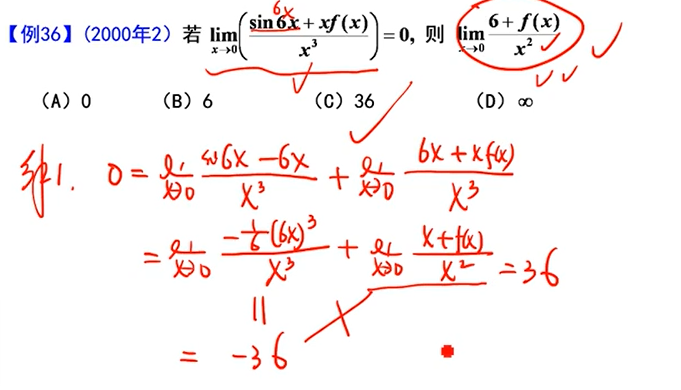 【例36】(2000年2) 若 lim_{x→0}((sin6x + xf(x))/x³) = 0, 则 lim_{x→0} (6 + f(x))/x²
6x
(A) 0 (B) 6 (C) 36 (D) ∞
解1. 0 = lim_{x→0} (sin6x − 6x)/x³ + lim_{x→0} (6x + xf(x))/x³
= lim_{x→0} (−1/6 (6x)³)/x³ + lim_{x→0} (x + f(x))/x² = 36
||
= −36